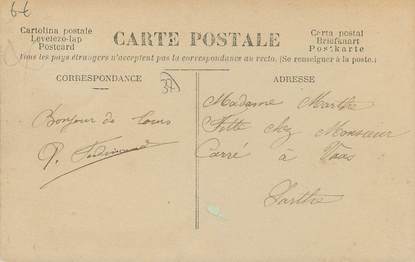 6€
Cartolina postale
Levelezo-lap
Postcard
CARTE POSTALE
Carta postal
Briefkaart
Postkarte
Tous les pays étrangers n'acceptent pas la correspondance au recto. (Se renseigner à la poste.)
CORRESPONDANCE
37
ADRESSE
Bonjour de tous
P. Ferdinand
Madame Marthe
Fille chez Monsieur
Carré à Vaas
Sarthe